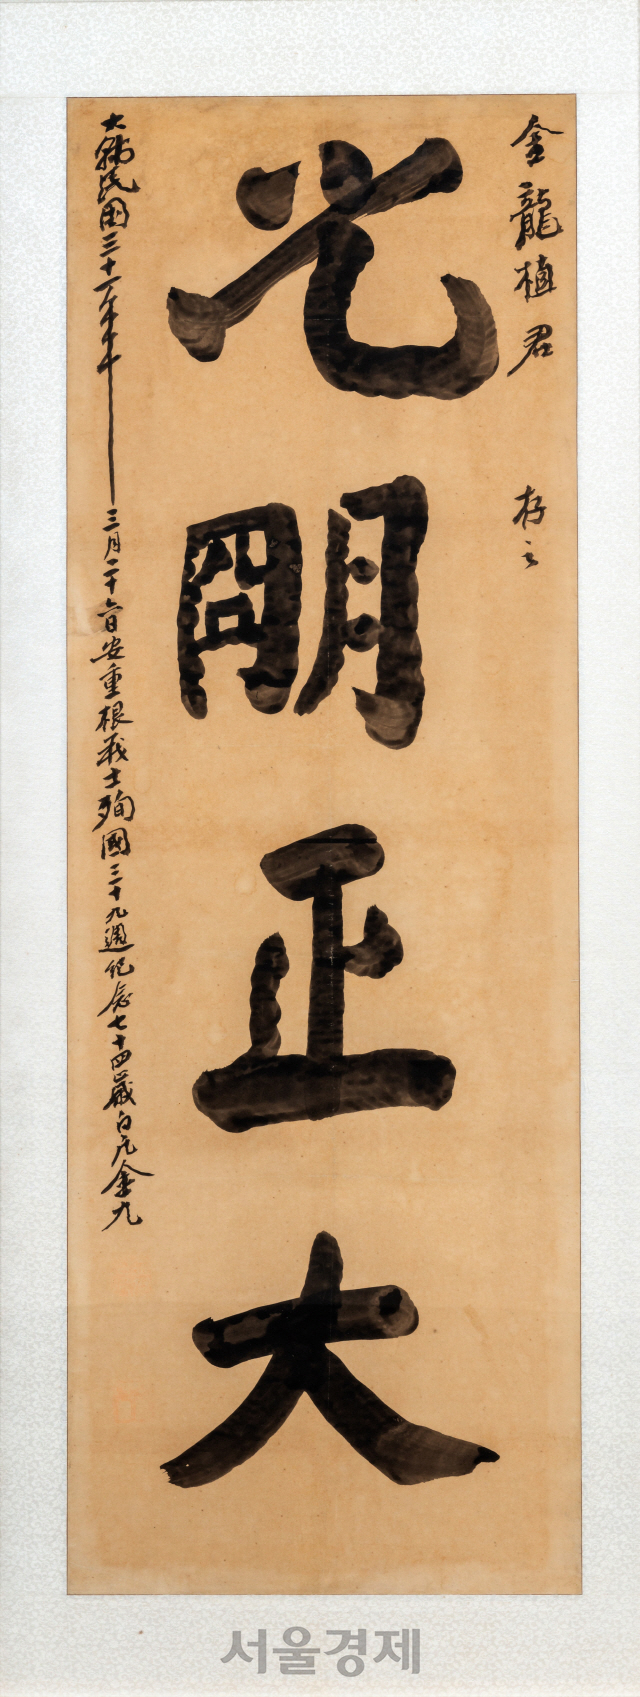 金龍植君 存之
光朙正大
大韓民國三十一年三月二十六日安重根義士殉國三十九週紀念七十四歲白凡金九
서울경제